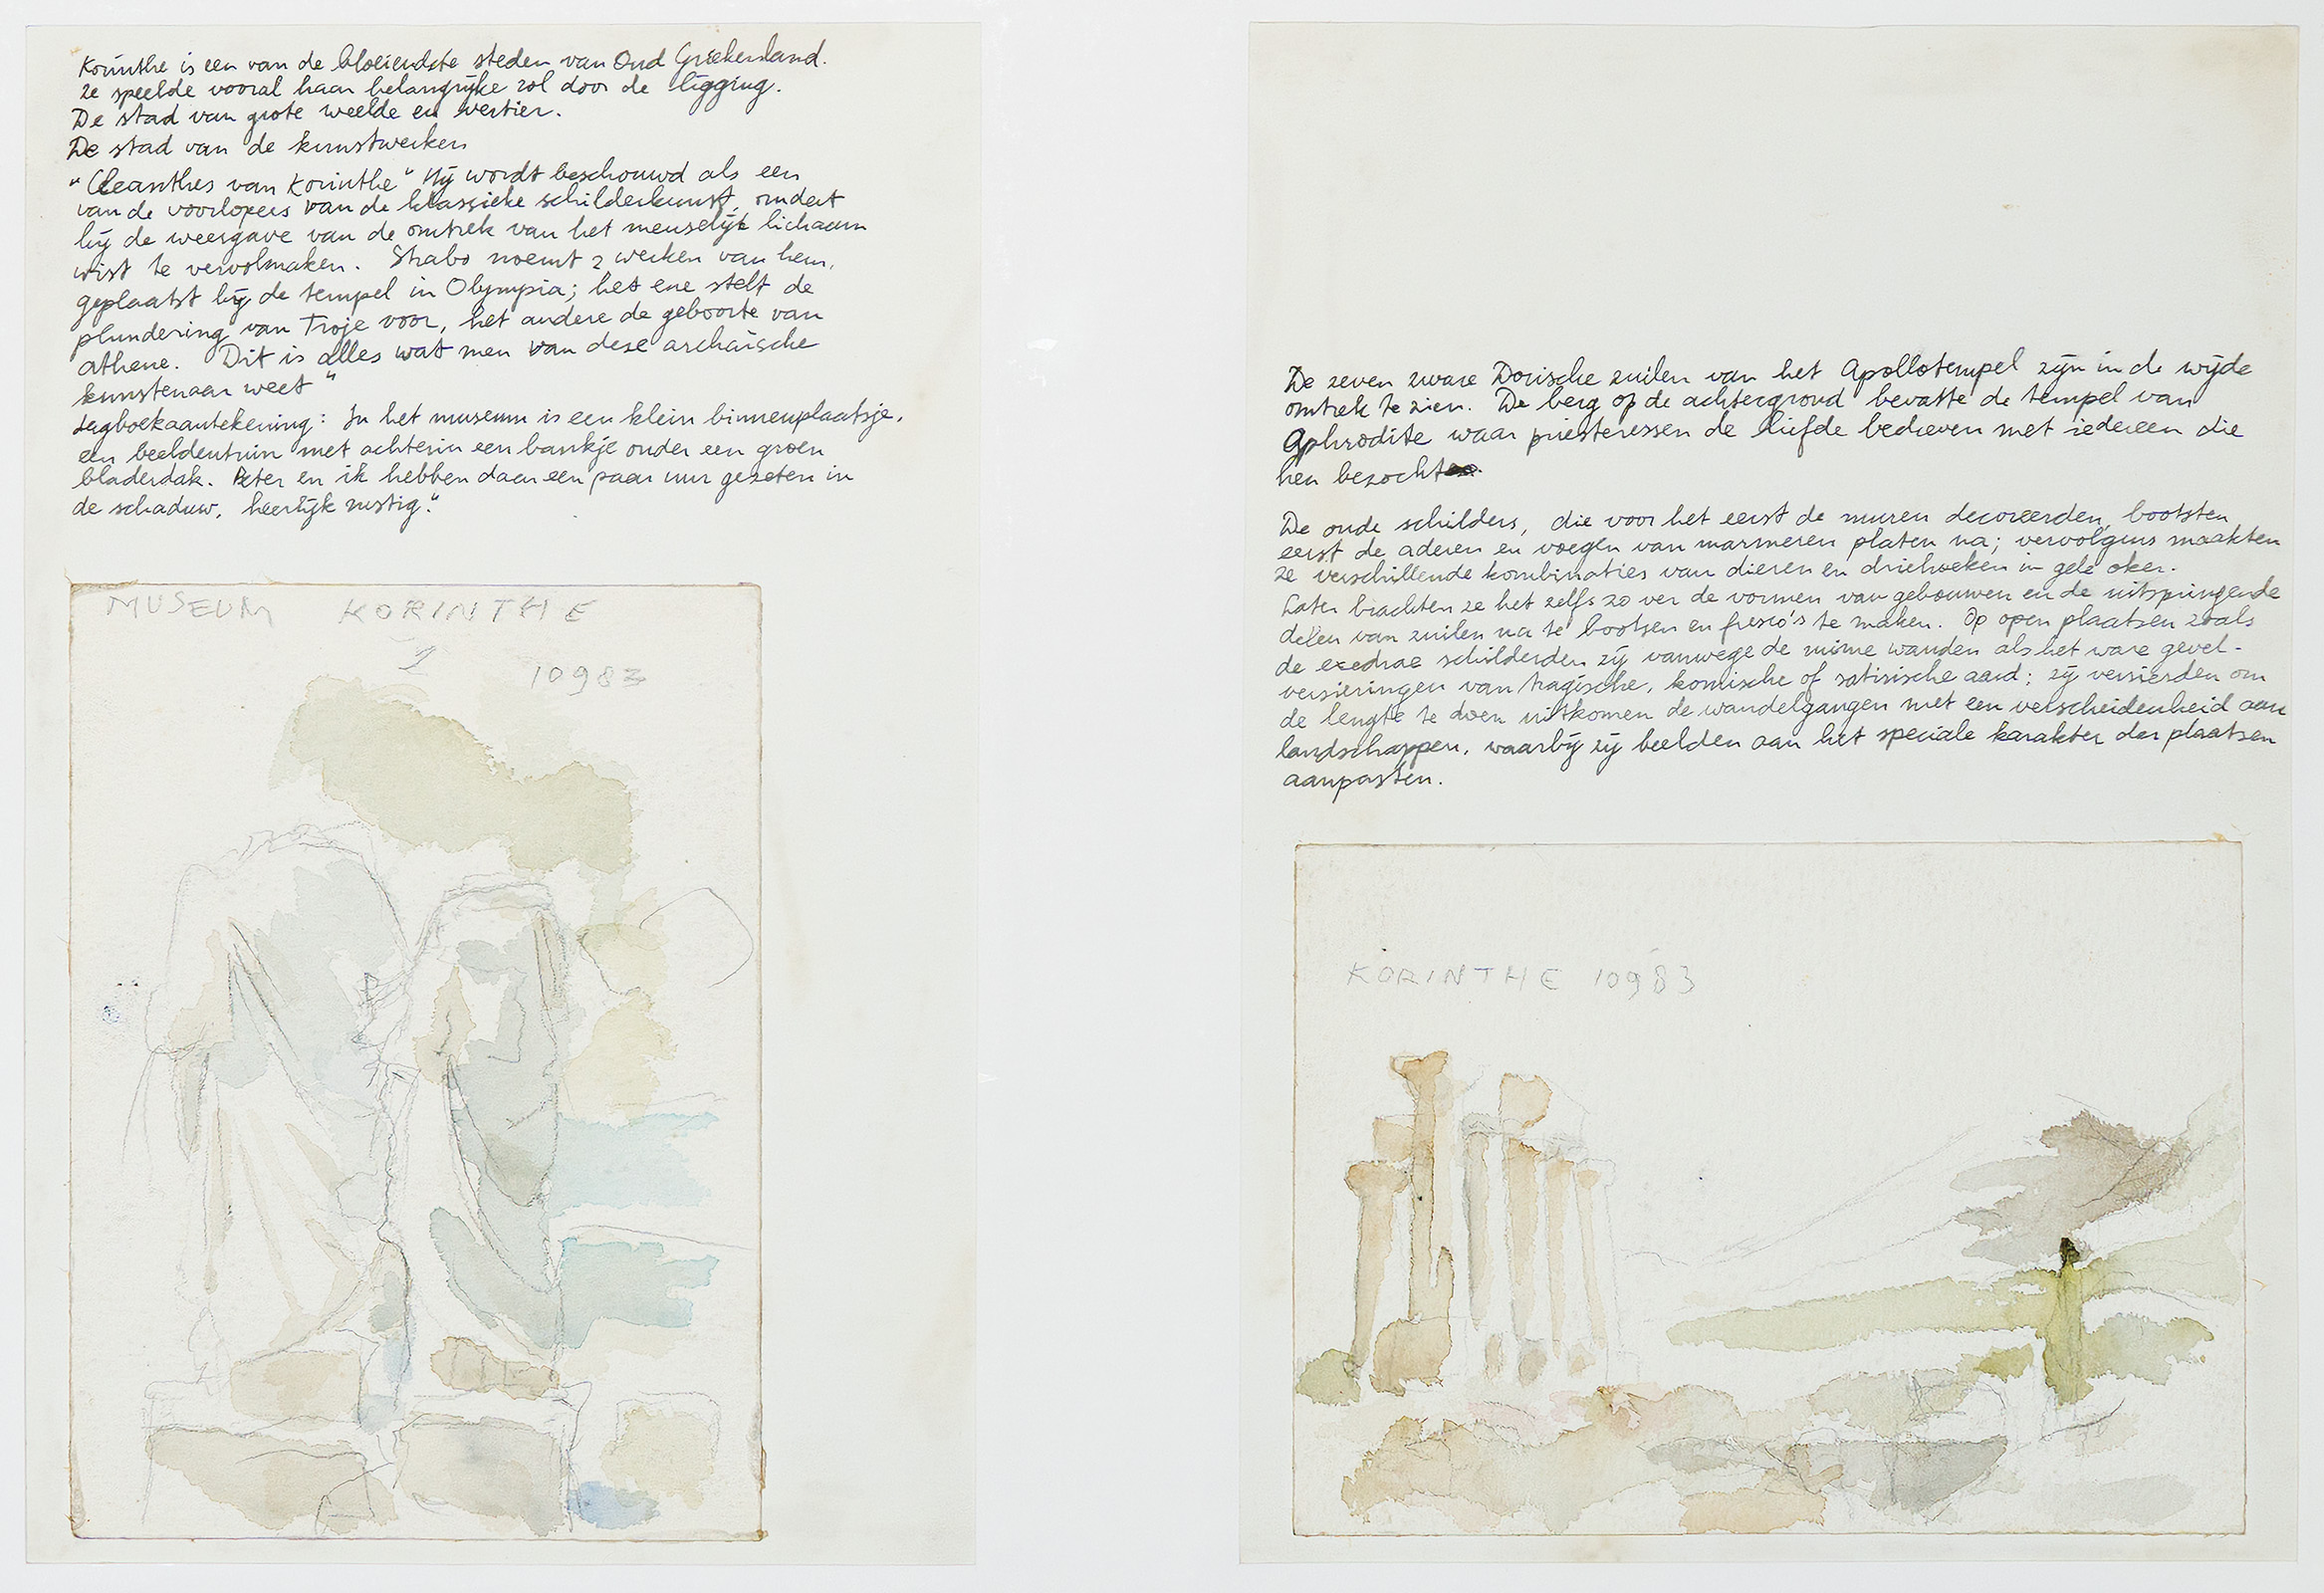 Korinthe is een van de bloeiendste steden van Oud Griekenland.
Ze speelde vooral haar belangrijke rol door de ligging.
De stad van grote weelde en vertier.
De stad van de kunstwerken
"Cleanthes van Korinthe" Hij wordt beschouwd als een
van de voorlopers van de klassieke schilderkunst, omdat
hij de weergave van de omtrek van het menselijk lichaam
wist te vervolmaken. Strabo noemt 2 werken van hem,
geplaatst bij de tempel in Olympia; het ene stelt de
plundering van Troje voor, het andere de geboorte van
athene. Dit is alles wat men van deze archaïsche
kunstenaar weet"
dagboekaantekening: In het museum is een klein binnenplaatsje,
een beeldentuin met achterin een bankje onder een groen
bladerdak. Peter en ik hebben daar een paar uur gezeten in
de schaduw, heerlijk rustig."
MUSEUM KORINTHE
1 10983
De zeven zware Dorische zuilen van het Apollotempel zijn in de wijde
omtrek te zien. De berg op de achtergrond bevatte de tempel van
Aphrodite waar priesteressen de liefde bedreven met iedereen die
hen bezocht.
De oude schilders, die voor het eerst de muren decoreerden, bootsten
eerst de aderen en voegen van marmeren platen na; vervolgens maakten
ze verschillende kombinaties van dieren en driehoeken in gele oker.
Later brachten ze het zelfs zo ver de vormen van gebouwen en de uitspringende
delen van zuilen na te bootsen en fresco's te maken. Op open plaatsen zoals
de exedrae schilderden zij vanwege de ruime wanden als het ware gevel-
versieringen van tragische, komische of satirische aard; zij versierden om
de lengte te doen uitkomen de wandelgangen met een verscheidenheid aan
landschappen, waarbij zij beelden aan het speciale karakter der plaatsen
aanpasten.
KORINTHE 10983